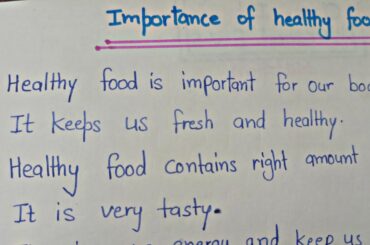 Importance of healthy foo
Healthy food is important for our bo
It keeps us fresh and healthy.
Healthy food contains right amount
It is very tasty.
energy and keep us